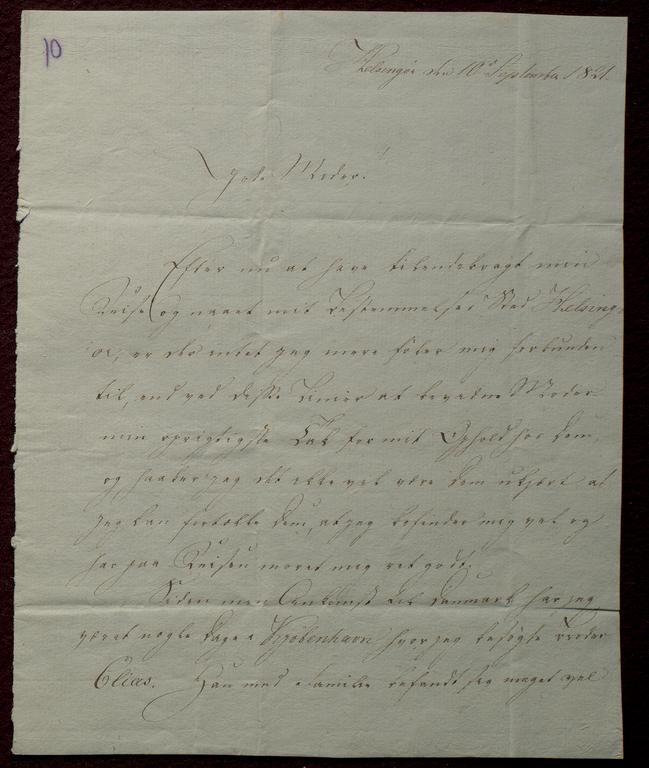 10
Helsingør den 10de September 1821.
Gode Moder!
Efter nu at have tilendebragt min
Reise og naaet mit Bestemmelses Sted Helsing-
ør, er der intet jeg mere føler mig forbunden
til, end ved disse Linier at bevidne Moder
min oprigtigste Tak for mit Ophold hos Dem,
og haaber jeg det ikke vil være Dem ukjært at
jeg kan fortælle Dem, at jeg befinder mig vel og
har paa Reisen moret mig ret godt.
Siden min Ankomst til Danmark har jeg
været nogle Dage i Kjøbenhavn hvor jeg besøgte Broder
Elias. Han med Familie befandt sig meget vel